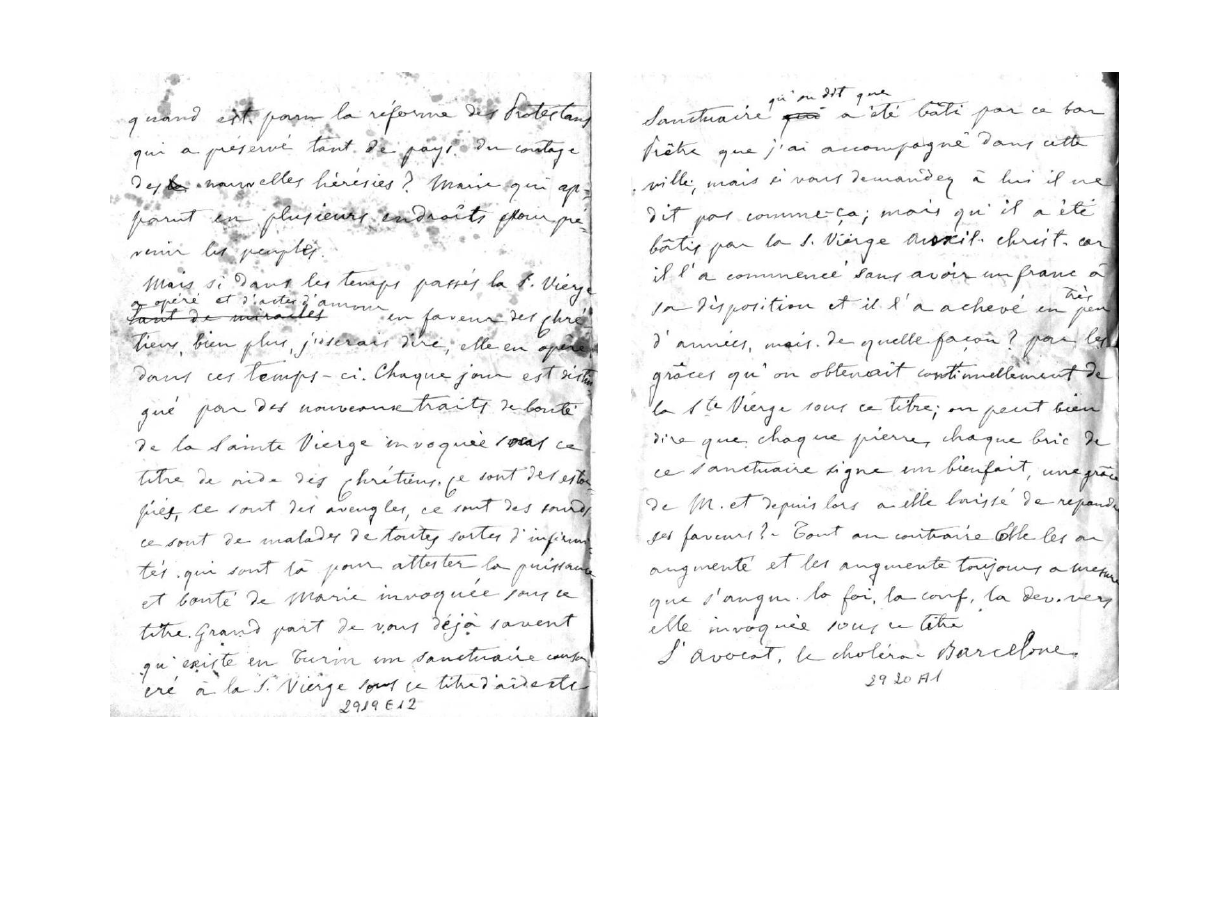 quand est parm la réforme des Protestans
qui a préservé tant de pays du contage
des nouvelles hérésies? Marie qui ap-
parut en plusieurs endroits pour pré-
venir les peuples.
Mais si dans les temps passés la S. Vierge
a opéré et d'actes d'amour
tant de miracles en faveur des chré-
tiens, bien plus, j'oserais dire, elle en opère
dans ces temps-ci. Chaque jour est distin
gué par des nouveaux traits de bonté
de la Sainte Vierge invoquée sous ce
titre de aide des Chrétiens. Ce sont des estro-
piés, ce sont des aveugles, ce sont des sourds
ce sont de malades de toutes sortes d'infirmi-
tés qui sont là pour attester la puissance
et bonté de Marie invoquée sous ce
titre. Grand part de vous déjà savent
qu'existe en Turin un sanctuaire consa
cré à la S. Vierge sous ce titre d'aide
2919 E12
qu'on dit que
Sanctuaire qui a été bâti par ce bon
Prêtre que j'ai accompagné dans cette
ville, mais si vous demandez à lui il ne
dit pas comme-ça; mais qu'il a été
bâtis par la S. Vierge Auxil. christ. car
il l'a commencé sans avoir un franc à
sa disposition et il l'a achevé en très peu
d'années, mais de quelle façon? par les
grâces qu'on obtenait continuellement de
la Ste Vierge sous ce titre; on peut bien
dire que chaque pierre, chaque bric de
ce sanctuaire signe un bienfait, une grâce
de M. et depuis lors a elle laissé de repandre
ses faveurs? - Tout au contraire Elle les a
augmenté et les augmente toujours a mesure
que s'augm. la foi, la conf, la dev. vers
elle invoquée sous ce titre
L'Avocat, le choléra - Barcelone
2920 A1